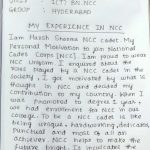 UNIT : 1(T) BN.NCC
GROUP : HYDERABAD
MY EXPERIENCE IN NCC
I am Harsh Sharma NCC cadet. My
Personal Motivation to join National
Cadets Corps (NCC). I am proud to wear
NCC Uniform. I enquired about the
roles played by a NCC cadet in the
Society. I get motivated by what is
thought in NCC and decided my
contribution to my country. When I
was Promoted to degree I year, I
are had enrollment for NCC in our
college. To be a NCC cadet is like
being unique, hardworking, dedicated,
Punctual and most of all an
achiever. NCC helps to make the
future bright. It inculcates the